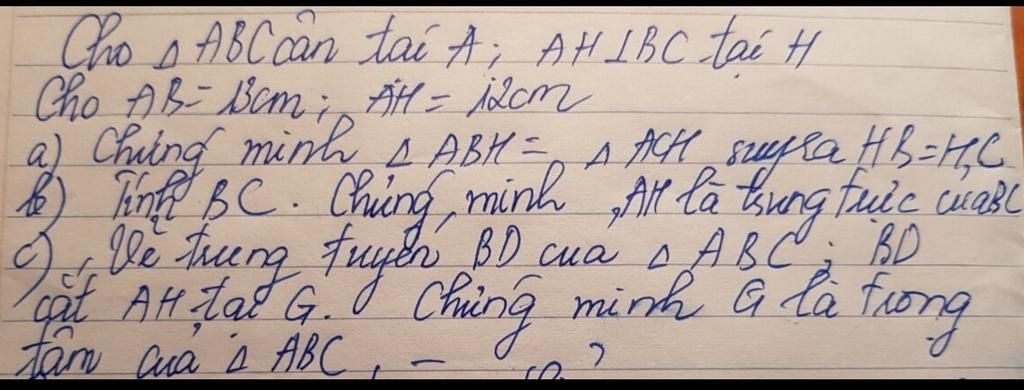 Cho △ ABC cân tai A; AH⊥BC tại H
Cho AB = 13cm; AH = 12cm
a) Chứng minh △ ABH = △ ACH suy ra HB = HC
b) Tính BC. Chứng minh AH là trung trực của BC
c) Vẽ trung tuyến BD cua △ ABC; BD
cắt AH tại G. Chứng minh G là trong
tâm của △ ABC,